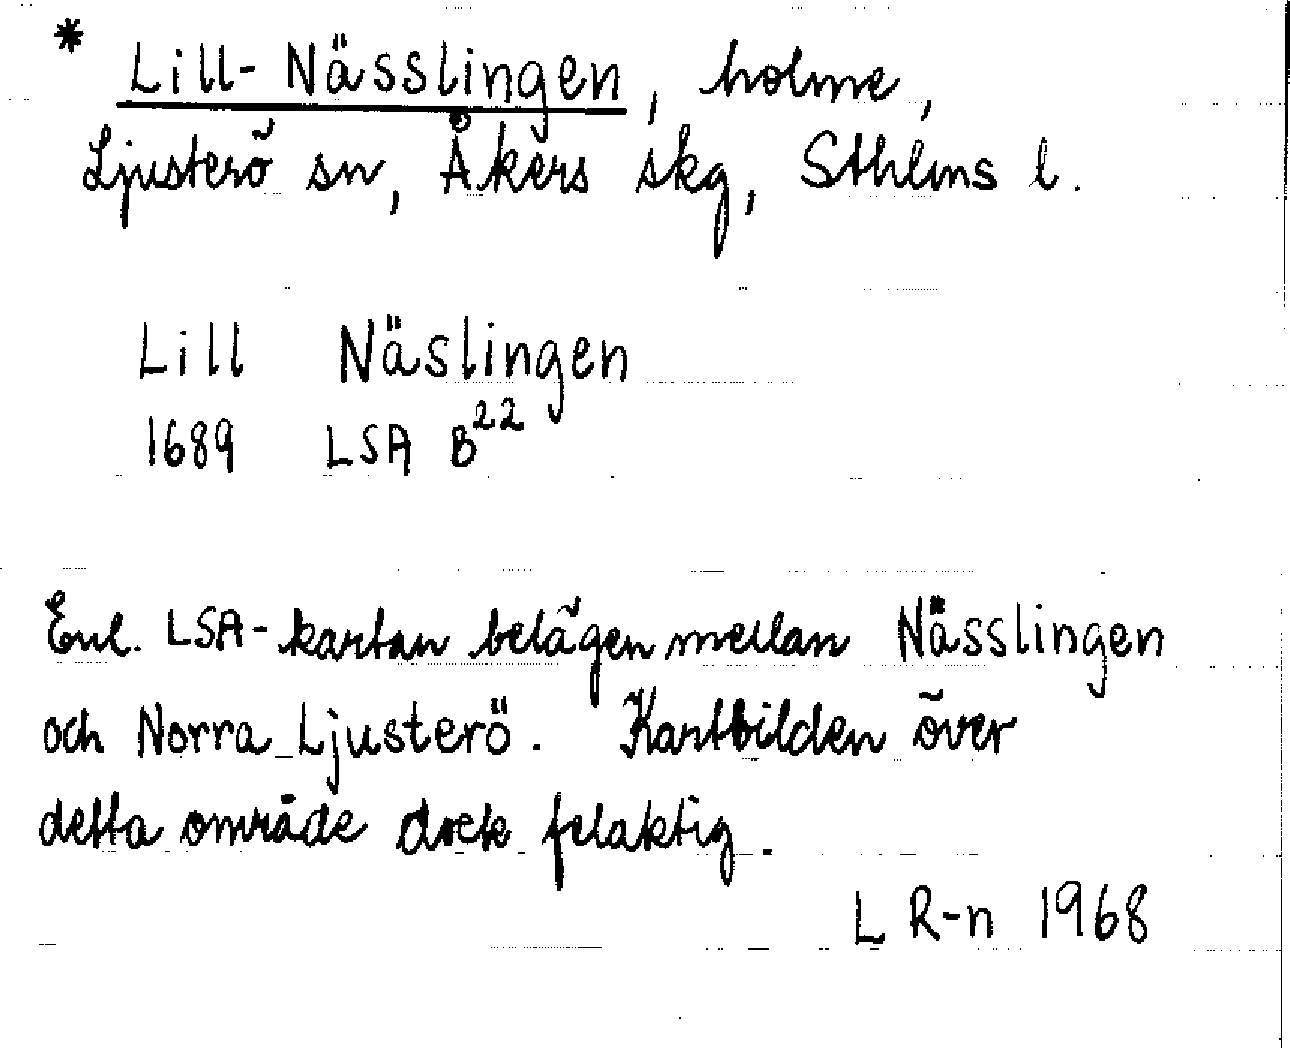 * Lill-Nässlingen, holme,
Ljusterö sn, Åkers skg, Sthlms l.
Lill Näslingen
1689 LSA B²²
Enl. LSA-kartan belägen mellan Nässlingen
och Norra Ljusterö. Kartbilden över
detta område dock felaktig.
L R-n 1968